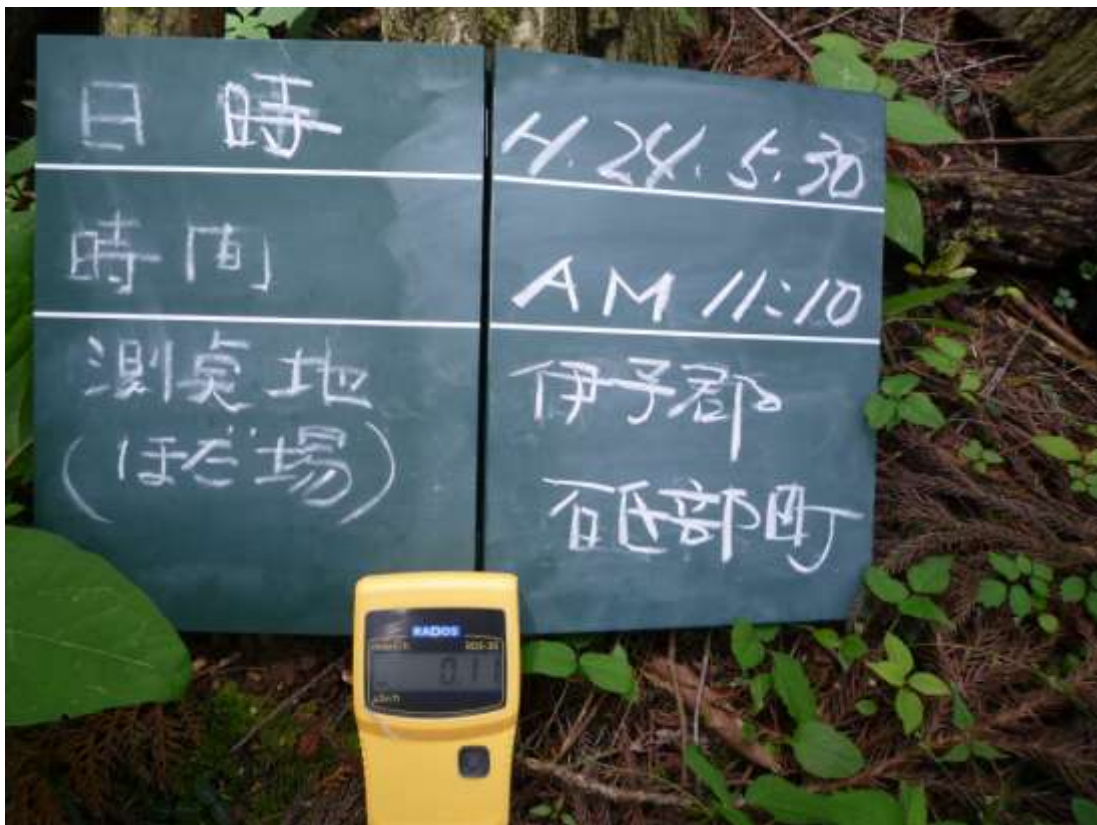 日時 H.24.5.30
時間 AM 11:10
測点地 伊予郡
(ほだ場) 砥部町
RADOS
0.11